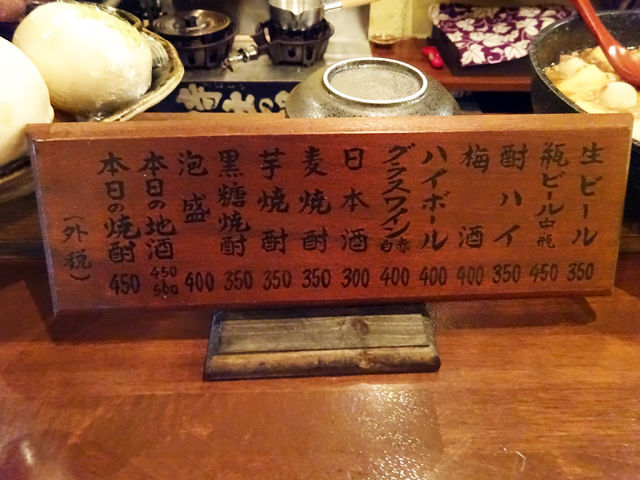 生ビール 350
瓶ビール中瓶 450
酎ハイ 350
梅酒 400
ハイボール 400
グラスワイン白赤 400
日本酒 300
麦焼酎 350
芋焼酎 350
黒糖焼酎 350
泡盛 400
本日の地酒 450 500
本日の焼酎 450
(外税)